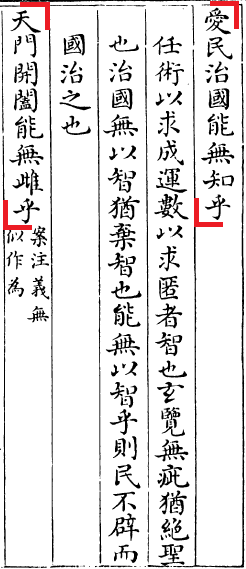 愛民治國能無知乎
任術以求成運數以求匿者智也玄覽無疵猶絶聖
也治國無以智猶棄智也能無以智乎則民不辟而
國治之也
天門開闔能無雌乎案注義無
似作為